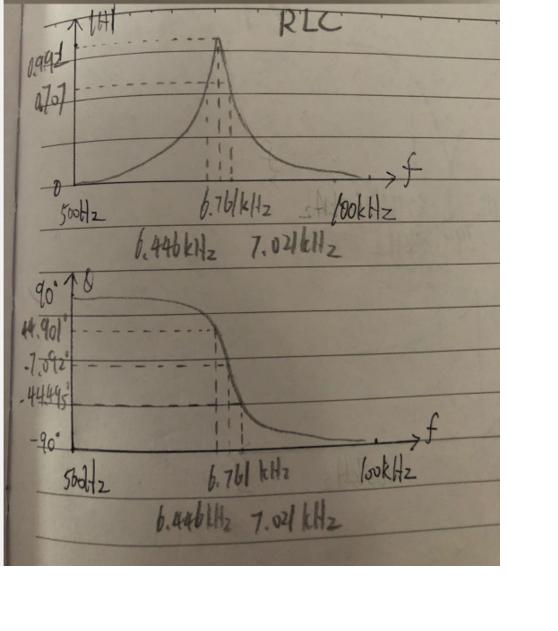 RLC
|H|
0.992
0.707
0
f
500Hz 6.761kHz 100kHz
6.446kHz 7.021kHz
90° θ
44.901°
-7.092°
-44.495°
-90°
f
500Hz 6.761 kHz 100kHz
6.446kHz 7.021 kHz